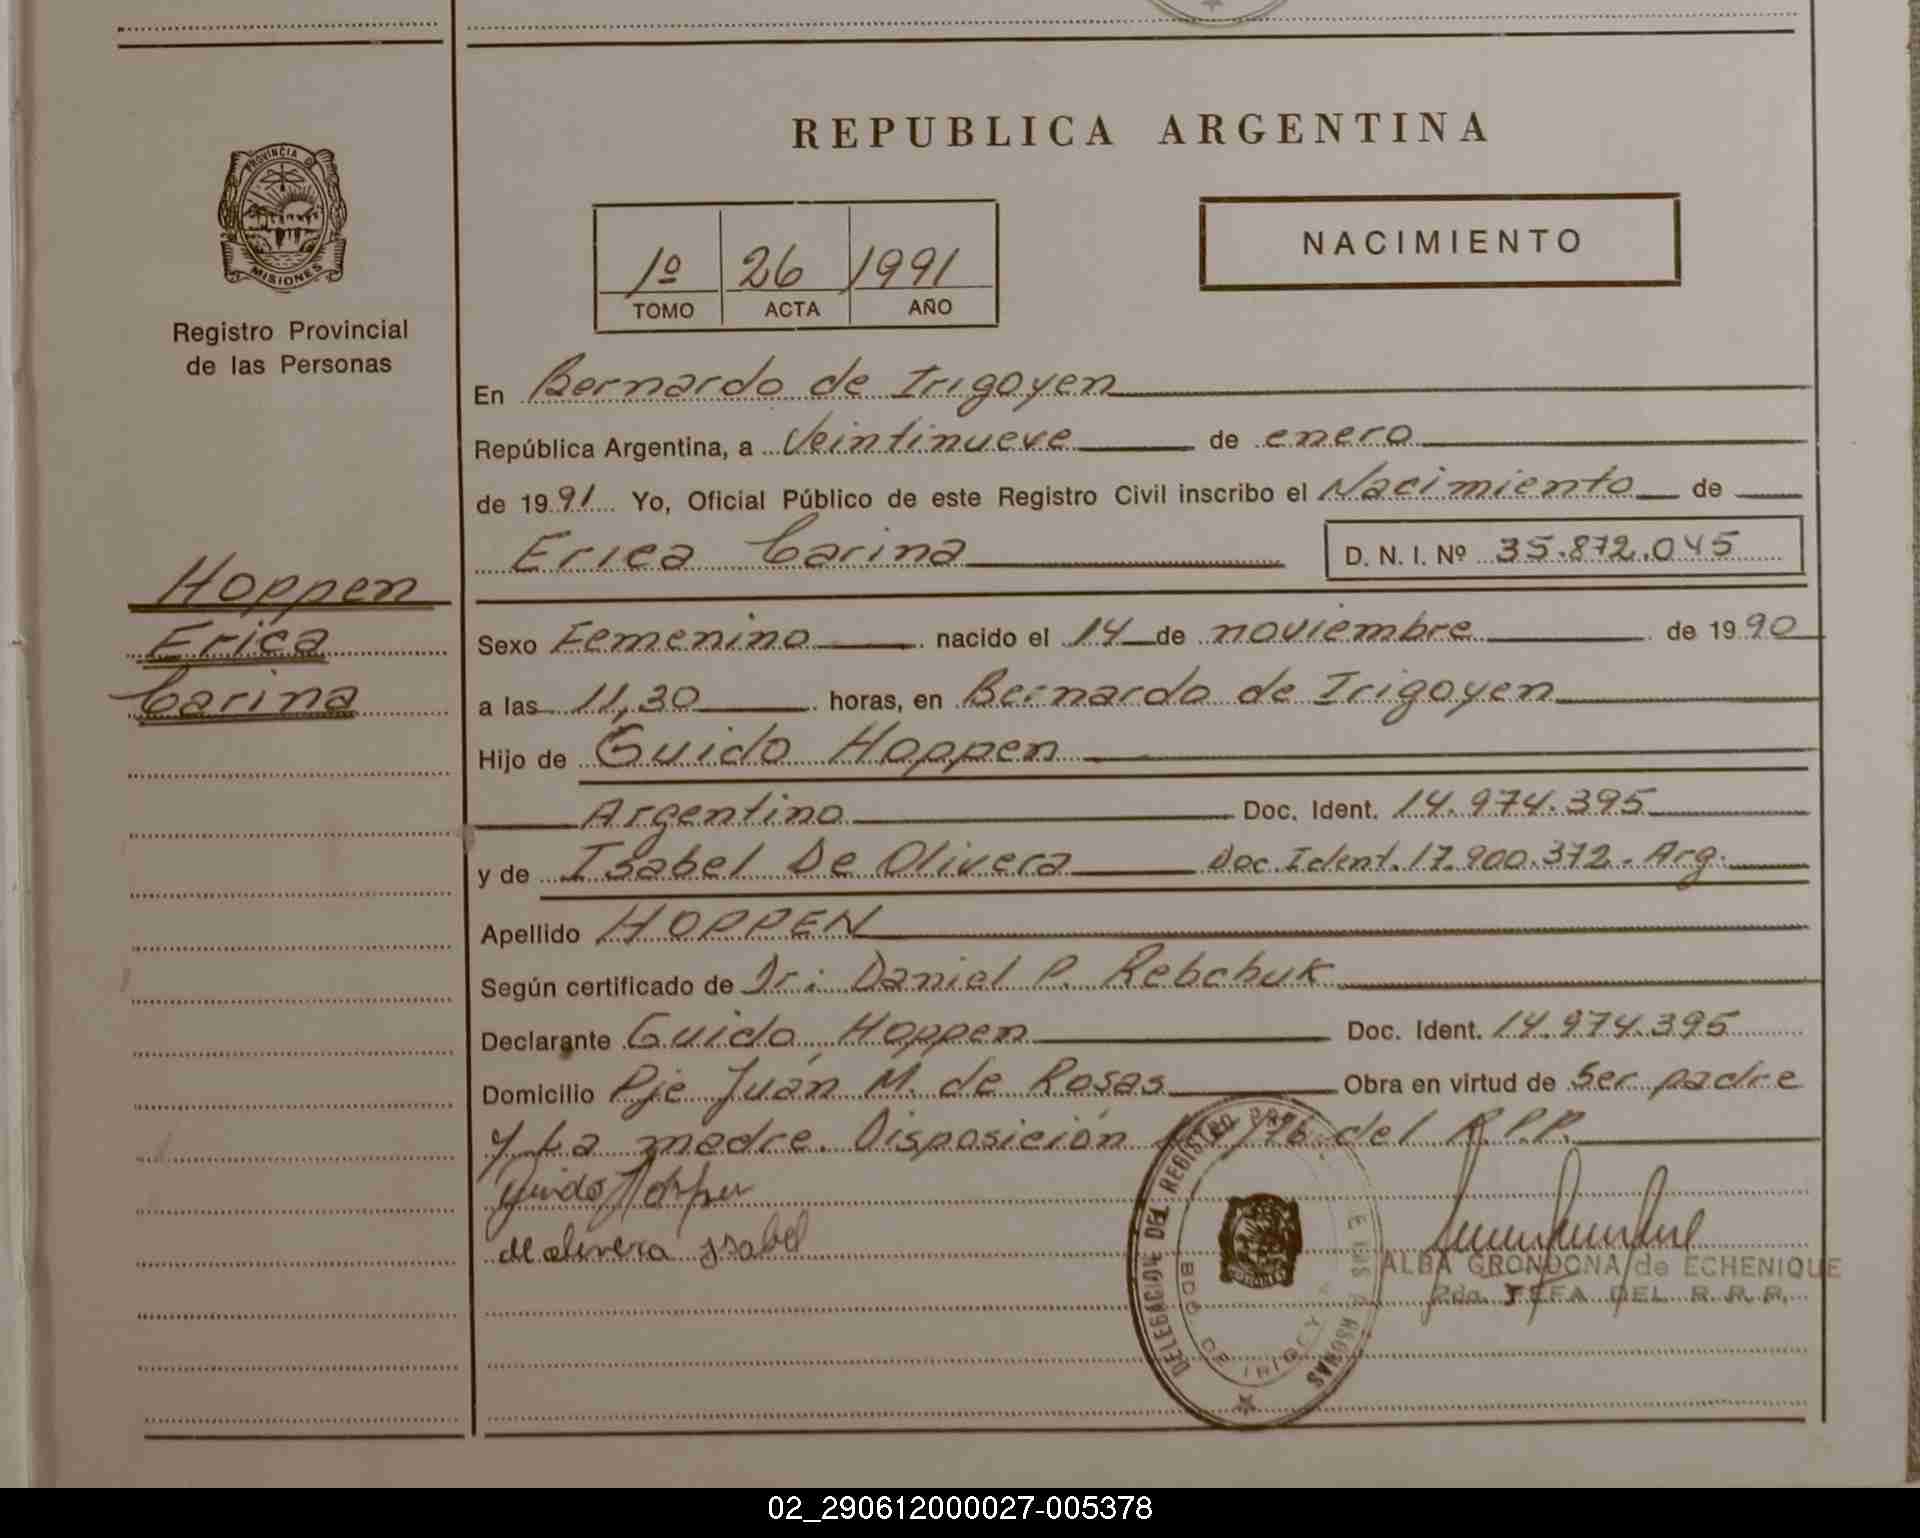 PROVINCIA DE
MISIONES
Registro Provincial
de las Personas
Hoppen
Erica
Carina
REPUBLICA ARGENTINA
1º 26 1991
TOMO ACTA AÑO
NACIMIENTO
En Bernardo de Irigoyen
República Argentina, a Veintinueve de enero
de 1991 Yo, Oficial Público de este Registro Civil inscribo el Nacimiento de
Erica Carina D. N. I. Nº 35.872.045
Sexo Femenino nacido el 14 de noviembre de 1990
a las 11,30 horas, en Bernardo de Irigoyen
Hijo de Guido Hoppen
Argentino Doc. Ident. 14.974.395
y de Isabel De Olivera Doc. Ident. 17.900.372. Arg.
Apellido HOPPEN
Según certificado de Dr: Daniel P. Rebchuk
Declarante Guido Hoppen Doc. Ident. 14.974.395
Domicilio Pje Juán M. de Rosas Obra en virtud de Ser padre
y La madre. Disposición del R.P.P.
Guido Hoppen
de olivera Isabel
DELEGACION DEL REGISTRO
BDO DE IRIGOYEN
ALBA GRONDONA de ECHENIQUE
2da. JEFA DEL R.R.P.
02_290612000027-005378